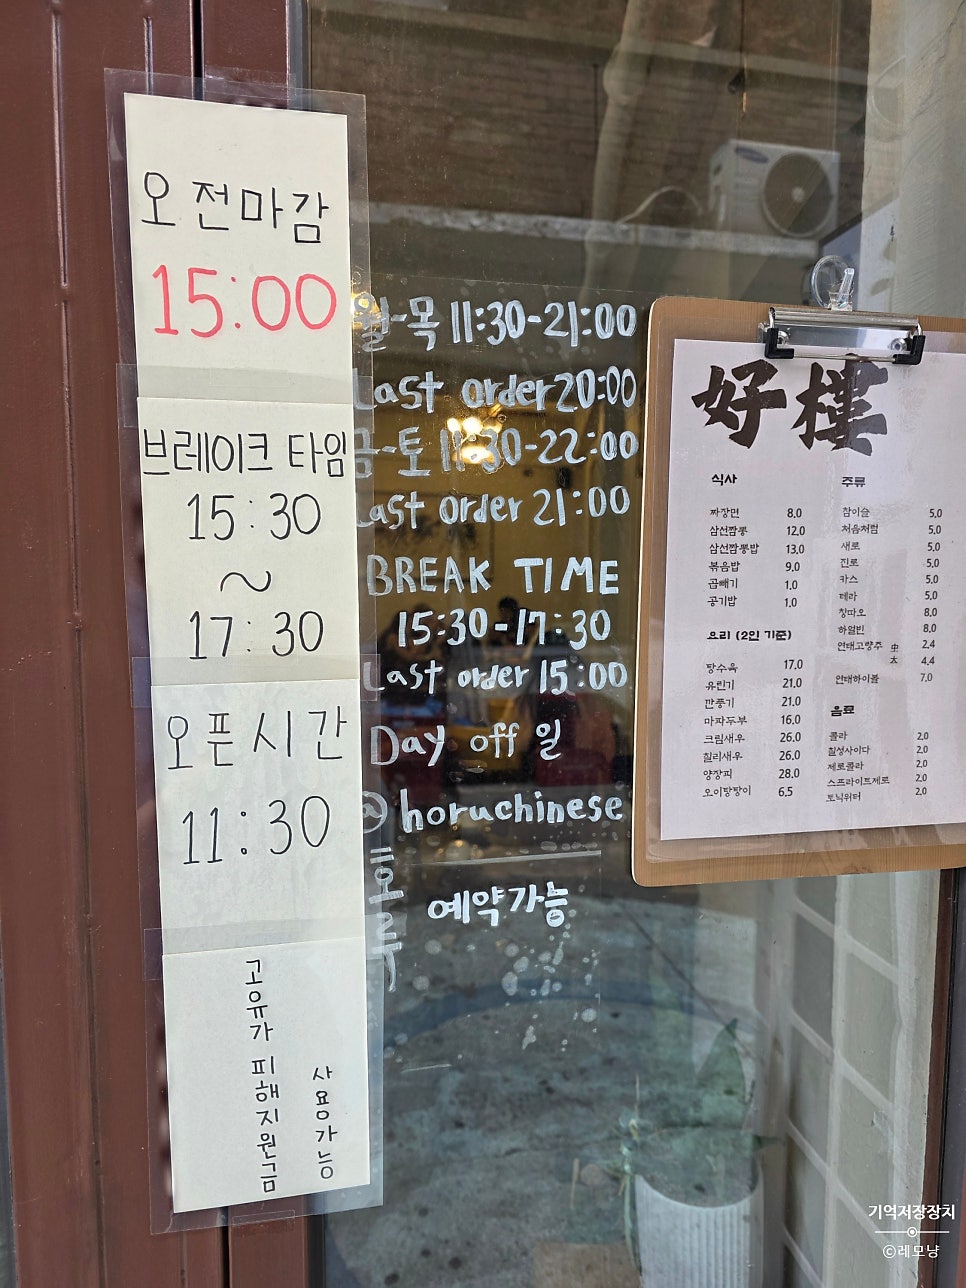 오전마감
15:00
브레이크 타임
15:30
~
17:30
오픈시간
11:30
고유가 피해지원금
사용가능
월-목 11:30-21:00
Last order 20:00
금-토 11:30-22:00
Last order 21:00
BREAK TIME
15:30-17:30
Last order 15:00
Day off 일
@horuchinese
호루
예약가능
好樓
식사
짜장면 8.0
삼선짬뽕 12.0
삼선짬뽕밥 13.0
볶음밥 9.0
곱빼기 1.0
공기밥 1.0
요리 (2인 기준)
탕수육 17.0
유린기 21.0
깐풍기 21.0
마파두부 16.0
크림새우 26.0
칠리새우 26.0
양장피 28.0
오이탕탕이 6.5
주류
참이슬 5.0
처음처럼 5.0
새로 5.0
진로 5.0
카스 5.0
테라 5.0
칭따오 8.0
하얼빈 8.0
연태고량주 中 2.4
大 4.4
연태하이볼 7.0
음료
콜라 2.0
칠성사이다 2.0
제로콜라 2.0
스프라이트제로 2.0
토닉워터 2.0
기억저장장치
©레모냥